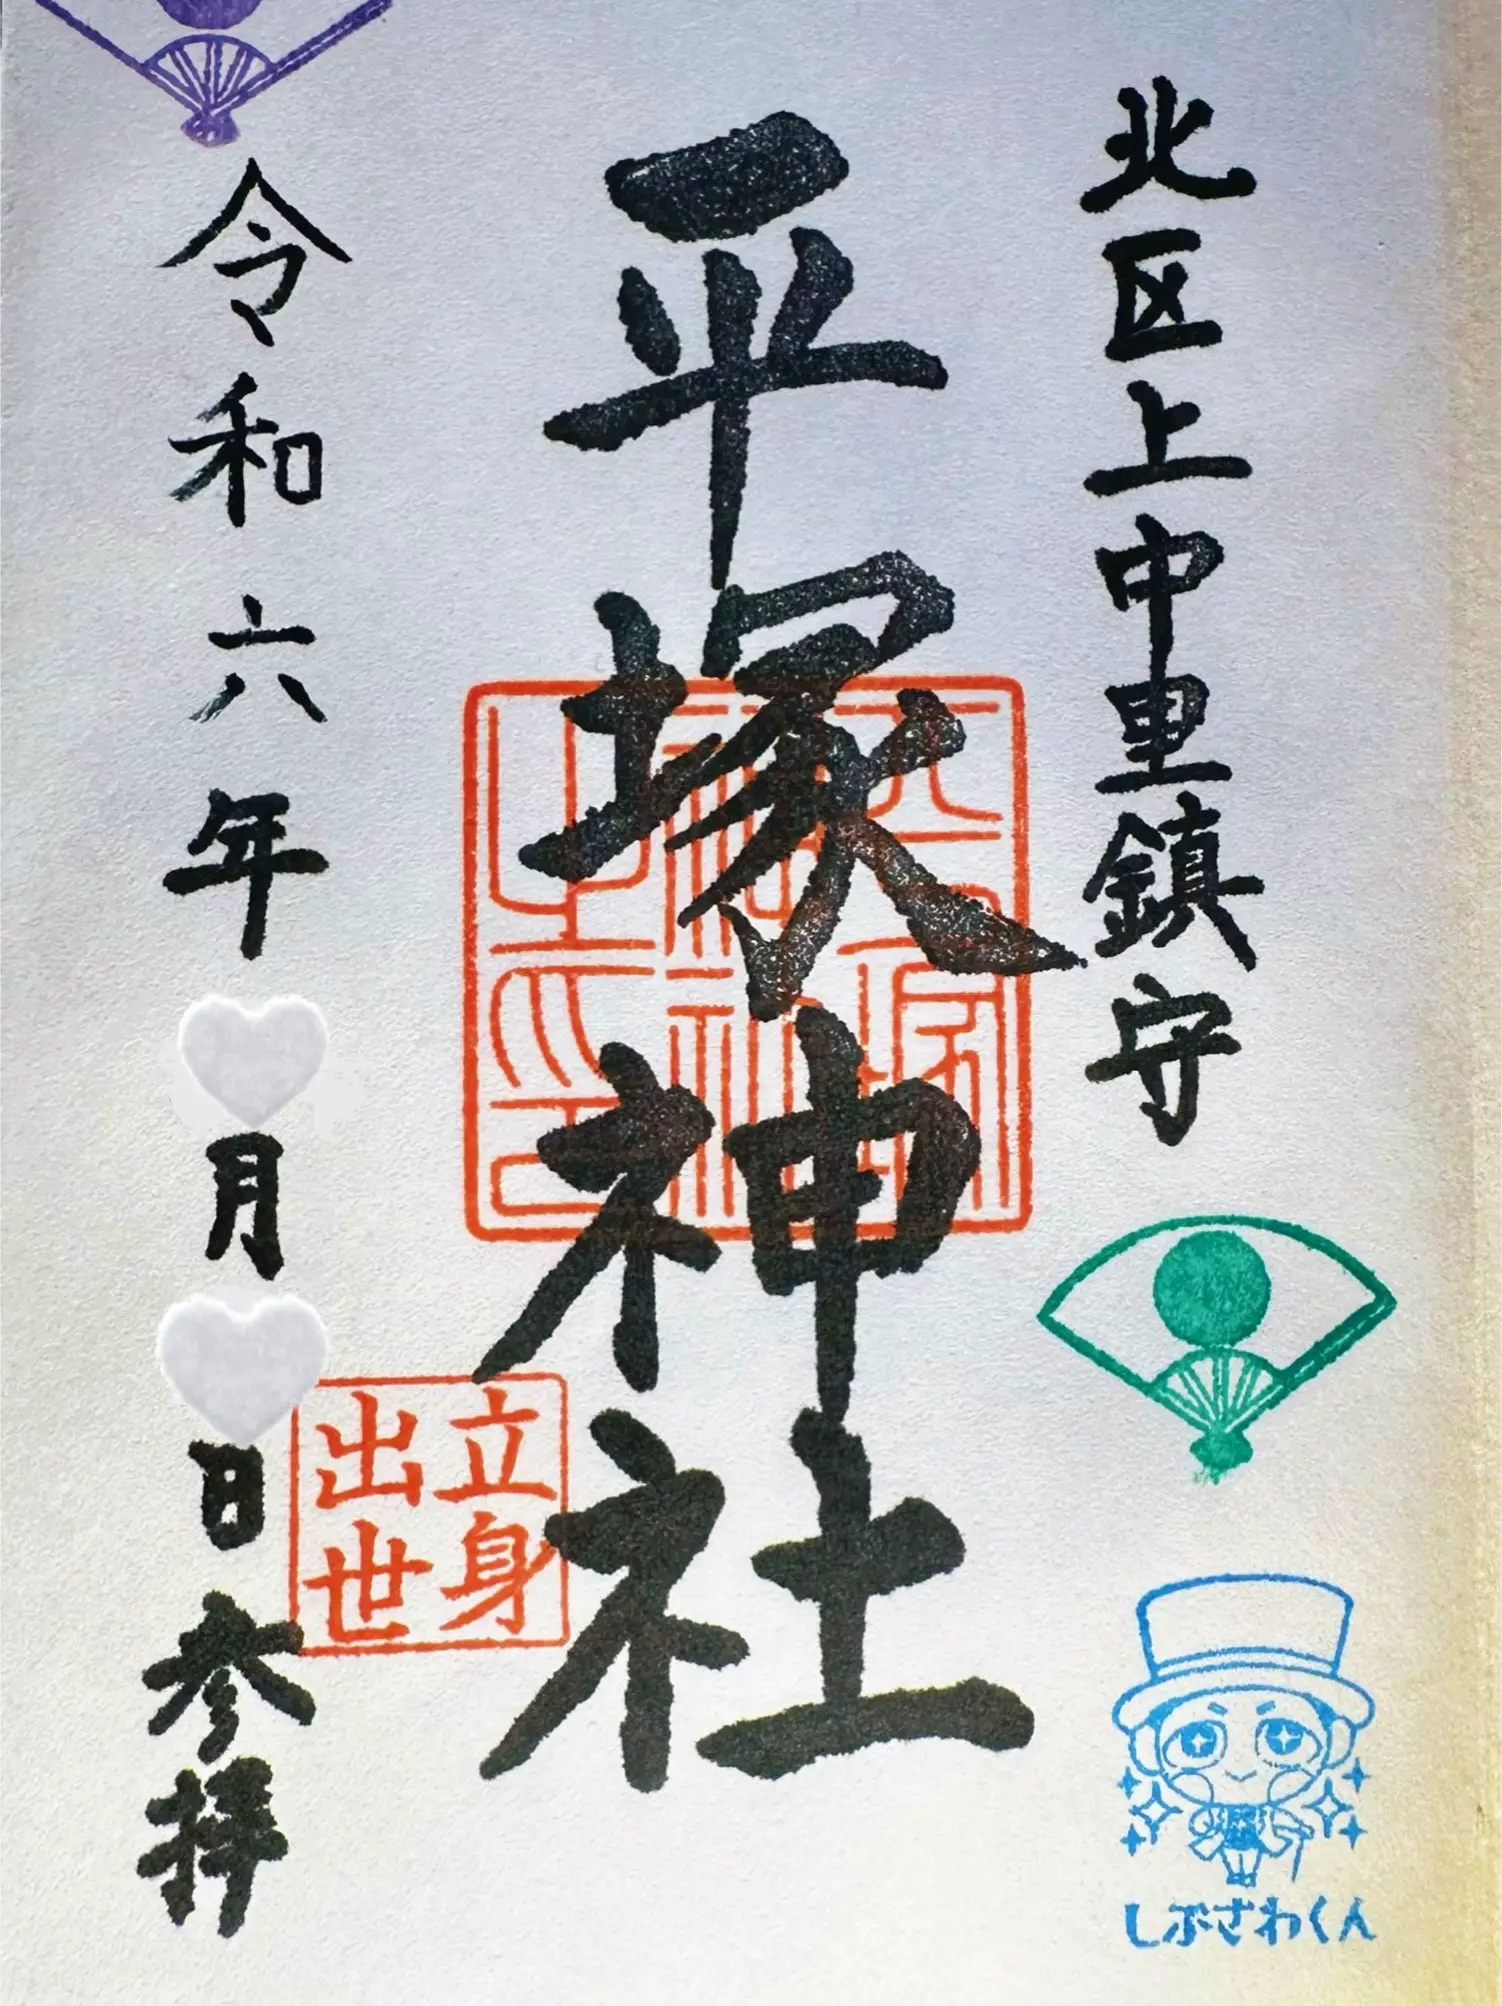 北区上中里鎮守
平塚神社
平塚神社之印
立身
出世
令和六年
月
日参拝
しぶざわくん